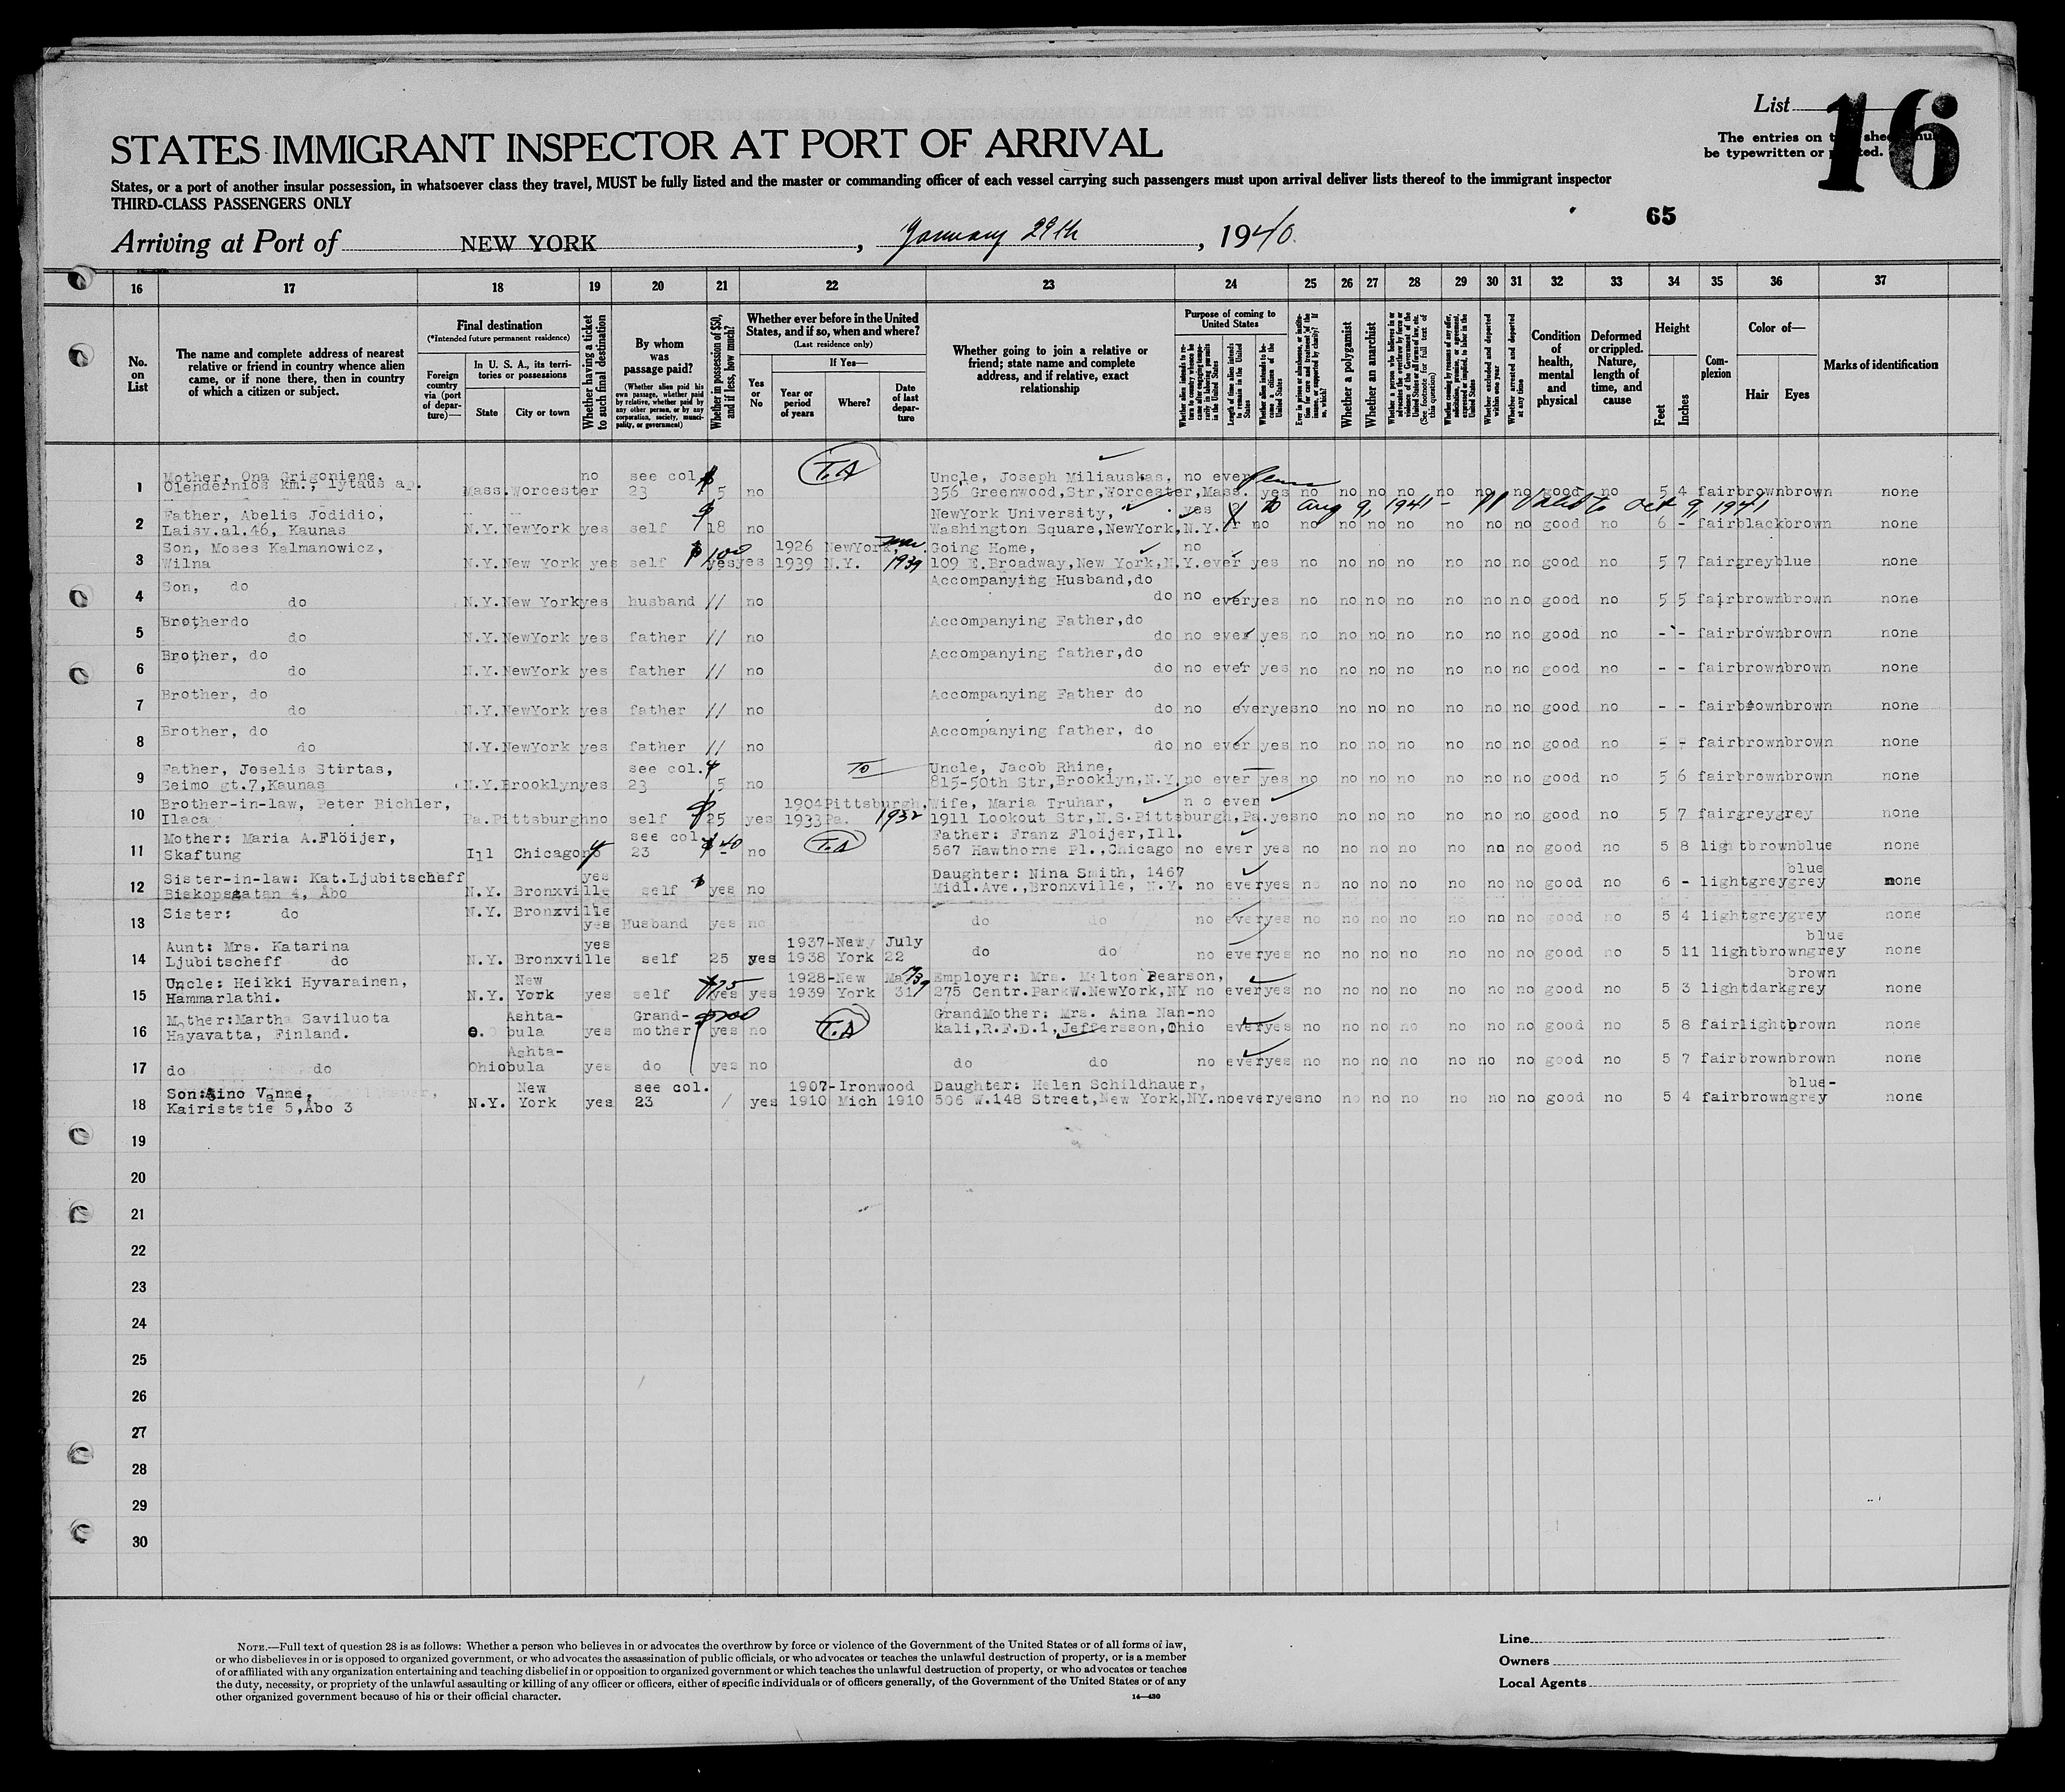 List
16
The entries on
be typewritten or
STATES IMMIGRANT INSPECTOR AT PORT OF ARRIVAL
States, or a port of another insular possession, in whatsoever class they travel, MUST be fully listed and the master or commanding officer of each vessel carrying such passengers must upon arrival deliver lists thereof to the immigrant inspector
THIRD-CLASS PASSENGERS ONLY
65
Arriving at Port of NEW YORK, January 29th, 1940
16 17 18 19 20 21 22 23 24 25 26 27 28 29 30 31 32 33 34 35 36 37
No. on List
The name and complete address of nearest relative or friend in country whence alien came, or if none there, then in country of which a citizen or subject.
Final destination
(*Intended future permanent residence)
Foreign country via (port of departure)—
In U. S. A., its territories or possessions
State
City or town
Whether having a ticket to such final destination
By whom was passage paid?
(Whether alien paid his own passage, whether paid by relative, whether paid by any other person, or by any corporation, society, municipality, or government)
Whether in possession of $50, and if less, how much?
Whether ever before in the United States, and if so, when and where?
(Last residence only)
Yes or No
If Yes—
Year or period of years
Where?
Date of last departure
Whether going to join a relative or friend; state name and complete address, and if relative, exact relationship
Purpose of coming to United States
Whether alien intends to return to country whence he came after engaging temporarily in laboring pursuits in the United States
Length of time alien intends to remain in the United States
Whether alien intends to become a citizen of the United States
Ever in prison or almshouse, or institution for care and treatment of the insane, or supported by charity? If so, which?
Whether a polygamist
Whether an anarchist
(See footnote for full text of this question)
Whether excluded and deported within one year
Whether arrested and deported at any time
Condition of health, mental and physical
Deformed or crippled. Nature, length of time, and cause
Height
Feet
Inches
Complexion
Color of—
Hair
Eyes
Marks of identification
1 Mother, Ona Grigoniene, no see col. $ T.A Uncle, Joseph Miliauskas, no ever
Olendernios km., lytaus ap. Mass. Worcester 23 5 no 356 Greenwood,Str,Worcester,Mass. yes no no no no no no no good no 5 4 fair brown brown none
2 Father, Abelis Jodidio, $ NewYork University, yes no Aug 9, 1941 - Valid to Oct 9, 1941
Laisv.al.46, Kaunas N.Y. NewYork yes self 18 no Washington Square,NewYork,N.Y. no no no no no no no no good no 6 - fair black brown none
3 Son, Moses Kalmanowicz, $ 100 1926 NewYork, Going Home, no
Wilna N.Y. New York yes self yes yes 1939 N.Y. 1939 109 E.Broadway,New York,N.Y. ever yes no no no no no no no good no 5 7 fair grey blue none
4 Son, do Accompanying Husband,do
do N.Y. New York yes husband // no do no ever yes no no no no no no no good no 5 5 fair brown brown none
5 Brother do Accompanying Father,do
do N.Y. NewYork yes father // no do no ever yes no no no no no no no good no - - fair brown brown none
6 Brother, do Accompanying father,do
do N.Y. NewYork yes father // no do no ever yes no no no no no no no good no - - fair brown brown none
7 Brother, do Accompanying Father do
do N.Y. NewYork yes father // no do no ever yes no no no no no no no good no - - fair brown brown none
8 Brother, do Accompanying father, do
do N.Y. NewYork yes father // no do no ever yes no no no no no no no good no - - fair brown brown none
9 Father, Joselis Stirtas, see col. Uncle, Jacob Rhine,
Seimo gt.7,Kaunas N.Y. Brooklyn yes 23 5 no 815-50th Str,Brooklyn,N.Y. no ever yes no no no no no no no good no 5 6 fair brown brown none
10 Brother-in-law, Peter Bichler, $ 1904 Pittsburgh, Wife, Maria Truhar, no ever
Ilaca Pa. Pittsburgh no self 25 yes 1933 Pa. 1932 1911 Lookout Str,N.S.Pittsburgh,Pa. yes no no no no no no no good no 5 7 fair grey grey none
11 Mother: Maria A.Flöijer, see col. $ 40 T.A Father: Franz Floijer,Ill.
Skaftung Ill Chicago 23 - no 567 Hawthorne Pl.,Chicago no ever yes no no no no no no no good no 5 8 light brown blue none
12 Sister-in-law: Kat.Ljubitscheff yes $ Daughter: Nina Smith, 1467 blue
Biskopsgatan 4, Åbo N.Y. Bronxville self yes no Midl.Ave.,Bronxville, N.Y. no ever yes no no no no no no no good no 6 - light grey grey none
13 Sister: do N.Y. Bronxville
yes Husband yes no do do no ever yes no no no no no no no good no 5 4 light grey grey none
14 Aunt: Mrs. Katarina yes 1937-New July blue
Ljubitscheff do N.Y. Bronxville self 25 yes 1938 York 22 do do no ever yes no no no no no no no good no 5 11 light brown grey none
15 Uncle: Heikki Hyvarainen, New 1928-New May Employer: Mrs. Milton Pearson, brown
Hammarlathi. N.Y. York yes self yes yes 1939 York 31 275 Centr.ParkW.NewYork,NY no ever yes no no no no no no no good no 5 3 light dark grey none
16 Mother:Martha Saviluota Ashta- Grand- T.A GrandMother: Mrs. Aina Nan- no
Hayavatta, Finland. O. bula yes mother yes no kali,R.F.D.1,Jeffersson,Ohio ever yes no no no no no no no good no 5 8 fair light brown none
17 Ashta-
do do Ohio bula yes do yes no do do no ever yes no no no no no no no good no 5 7 fair brown brown none
18 Son:Aino Vanne, New see col. 1907-Ironwood Daughter: Helen Schildhauer, blue-
Kairistetie 5,Åbo 3 N.Y. York yes 23 / yes 1910 Mich 1910 506 W.148 Street,New York,NY. no ever yes no no no no no no no good no 5 4 fair brown grey none
19
20
21
22
23
24
25
26
27
28
29
30
NOTE.—Full text of question 28 is as follows: Whether a person who believes in or advocates the overthrow by force or violence of the Government of the United States or of all forms of law,
or who disbelieves in or is opposed to organized government, or who advocates the assassination of public officials, or who advocates or teaches the unlawful destruction of property, or is a member
of or affiliated with any organization entertaining and teaching disbelief in or opposition to organized government or which teaches the unlawful destruction of property, or who advocates or teaches
the duty, necessity, or propriety of the unlawful assaulting or killing of any officer or officers, either of specific individuals or of officers generally, of the Government of the United States or of any
other organized government because of his or their official character.
14—430
Line
Owners
Local Agents